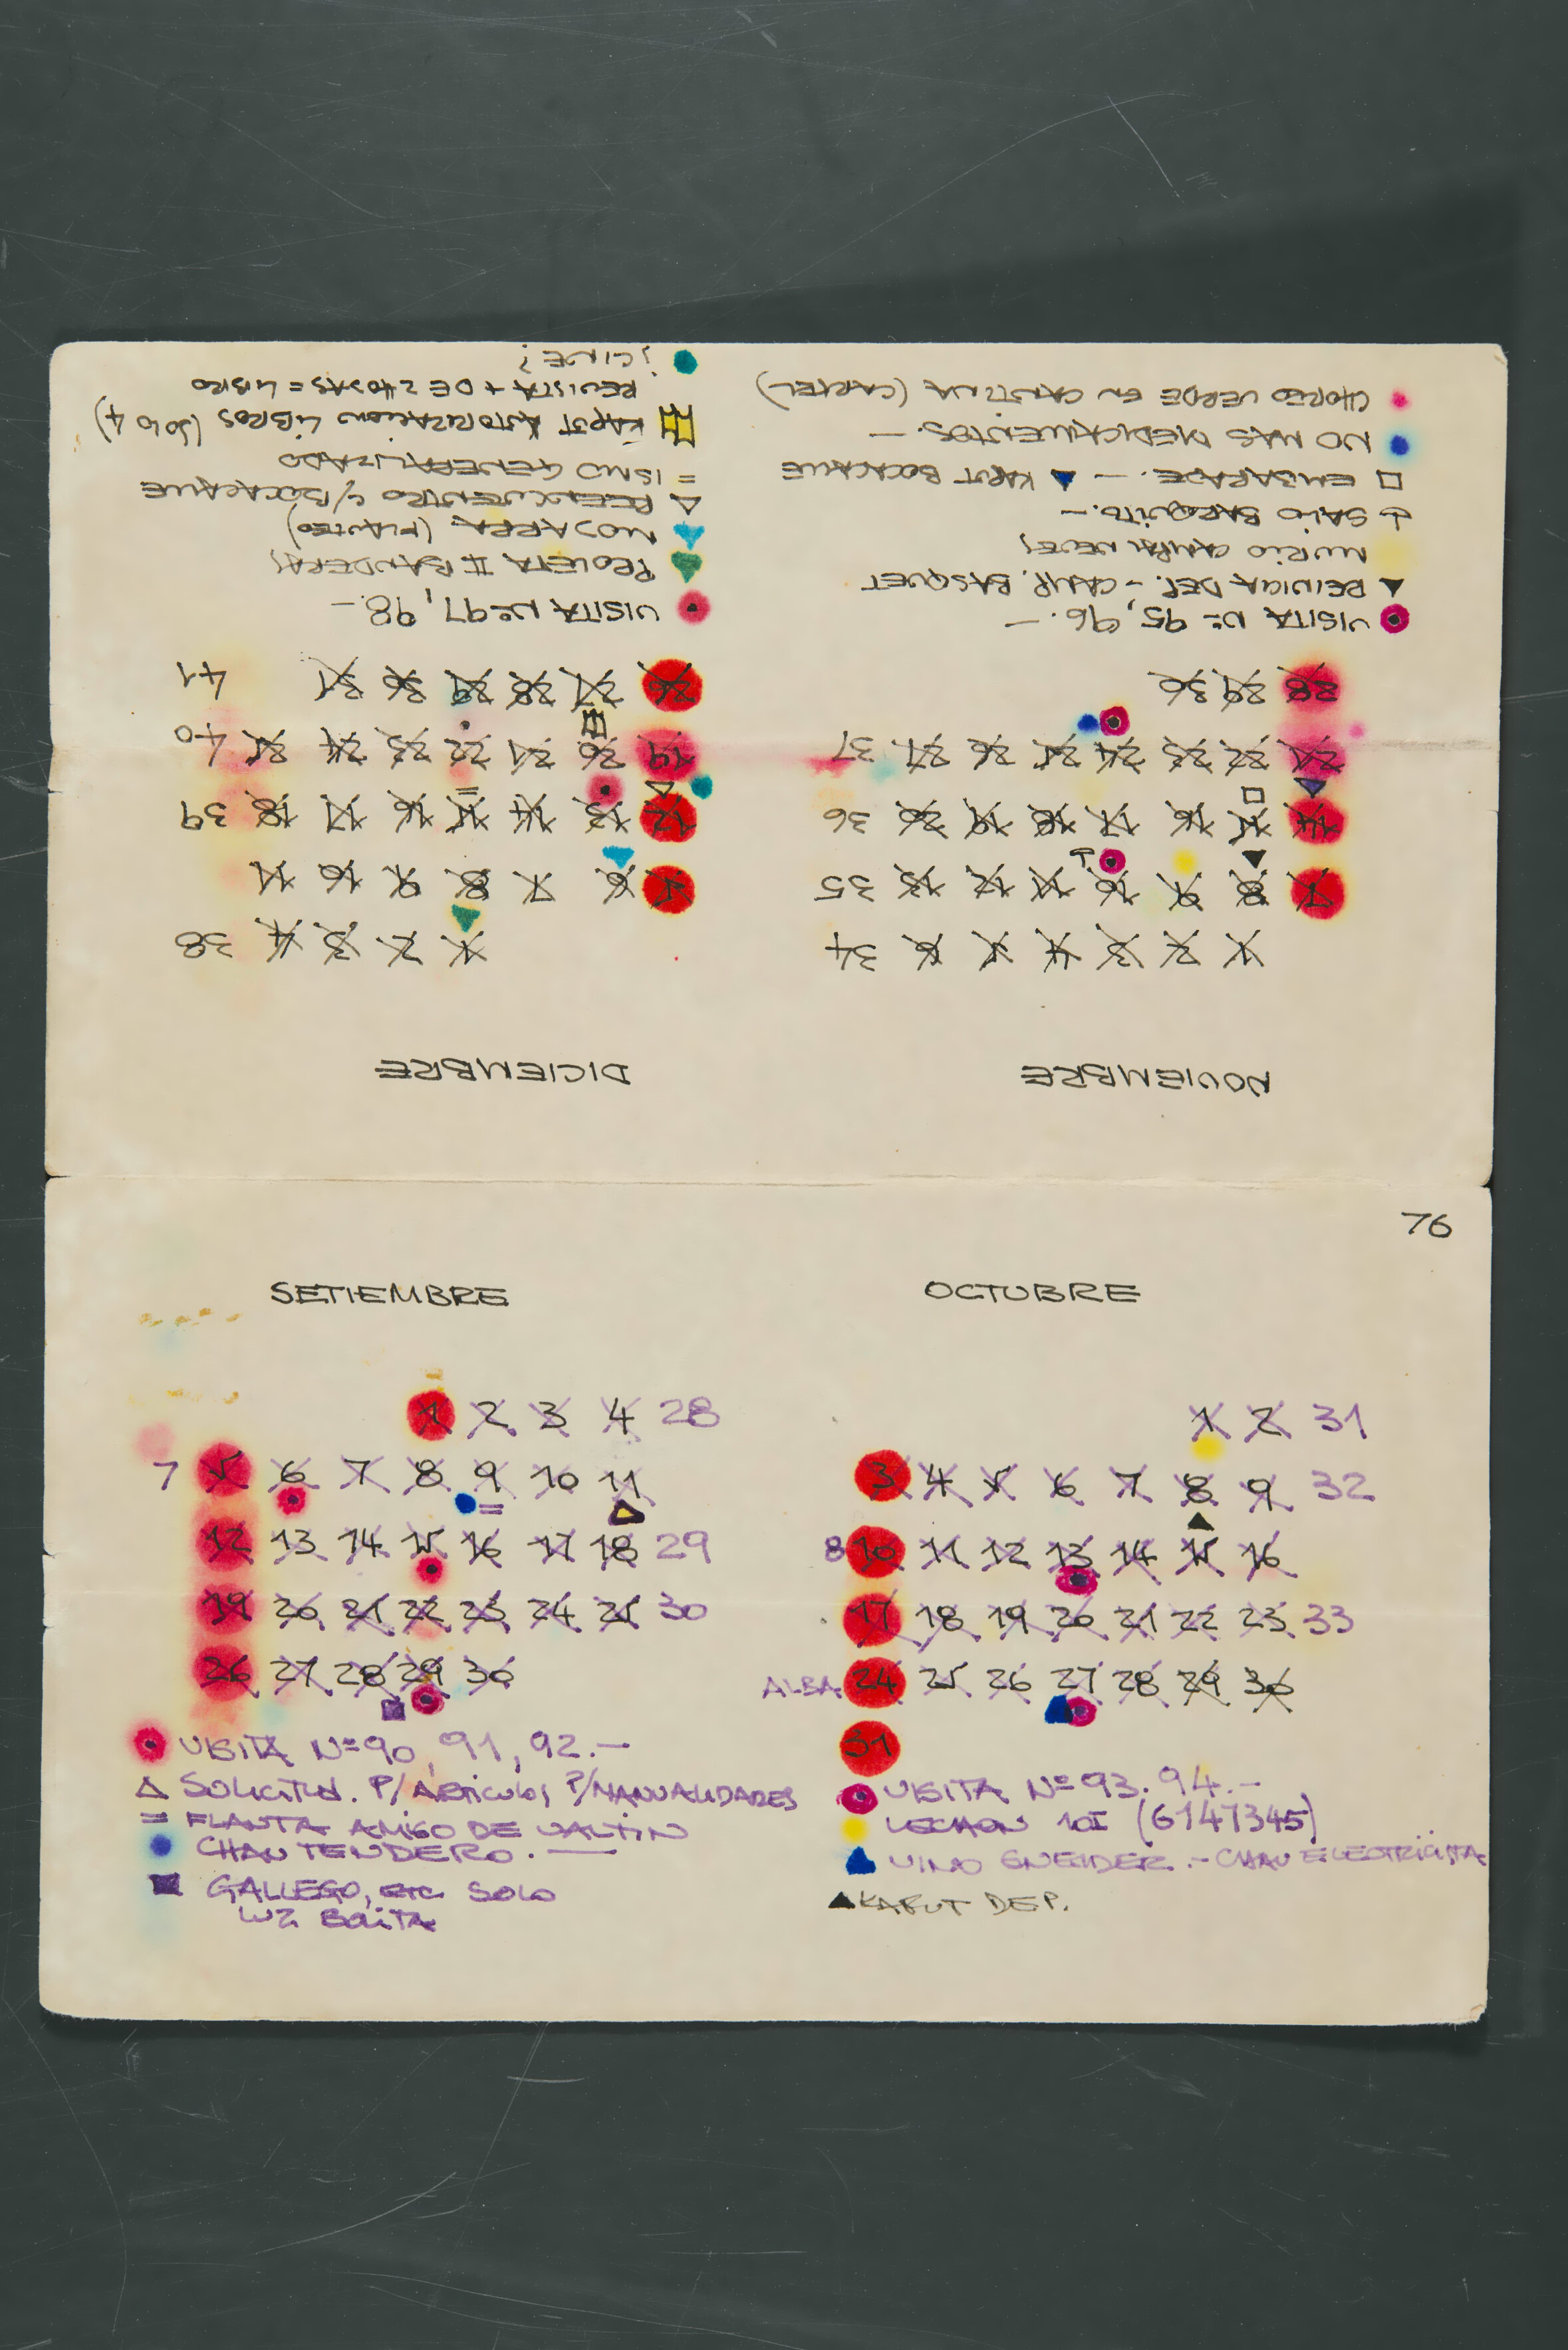 76
SETIEMBRE
1 2 3 4 28
7 5 6 7 8 9 10 11
12 13 14 15 16 17 18 29
19 20 21 22 23 24 25 30
26 27 28 29 30
VISITA Nº 90, 91, 92.—
SOLICITUD. P/ARTICULOS P/MANUALIDADES
= FLANTA AMIGO DE VALTIN
CHAU TENDERO. —
GALLEGO, ETC SOLO
LUZ BOITA
OCTUBRE
1 2 31
3 4 5 6 7 8 9 32
8 10 11 12 13 14 15 16
17 18 19 20 21 22 23 33
ALBA 24 25 26 27 28 29 30
31
VISITA Nº 93. 94.—
LECHON 10I (6147345)
VINO SNEIDER.- CHAU ELECTRICISTA
KAPUT DEP.
NOVIEMBRE
1 2 3 4 5 6 34
7 8 9 10 11 12 13 35
14 15 16 17 18 19 20 36
21 22 23 24 25 26 27 37
28 29 30
VISITA Nº 95, 96.—
REINICIA DEP. - CAMP. BASQUET
MURIO
SALIO BARQUITO.—
EMBARADE.— KAPUT BOCACALLE
NO MAS MEDICAMENTOS.—
CHOREO VERDE EN CANTINA (CARTEL)
DICIEMBRE
1 2 3 4 38
5 6 7 8 9 10 11
12 13 14 15 16 17 18 39
19 20 21 22 23 24 25 40
26 27 28 29 30 31 41
VISITA Nº 97, 98.—
PROLETA II BANDERAS
MOJARRA (FLAUTEO)
REENCUENTRO C/BOCACALLE
= ISMO GENERALIZADO
KAPUT AUTORIZACION LIBROS (SOLO 4)
REVISTA + DE 2 HOJAS = LIBRO
¿CINE?